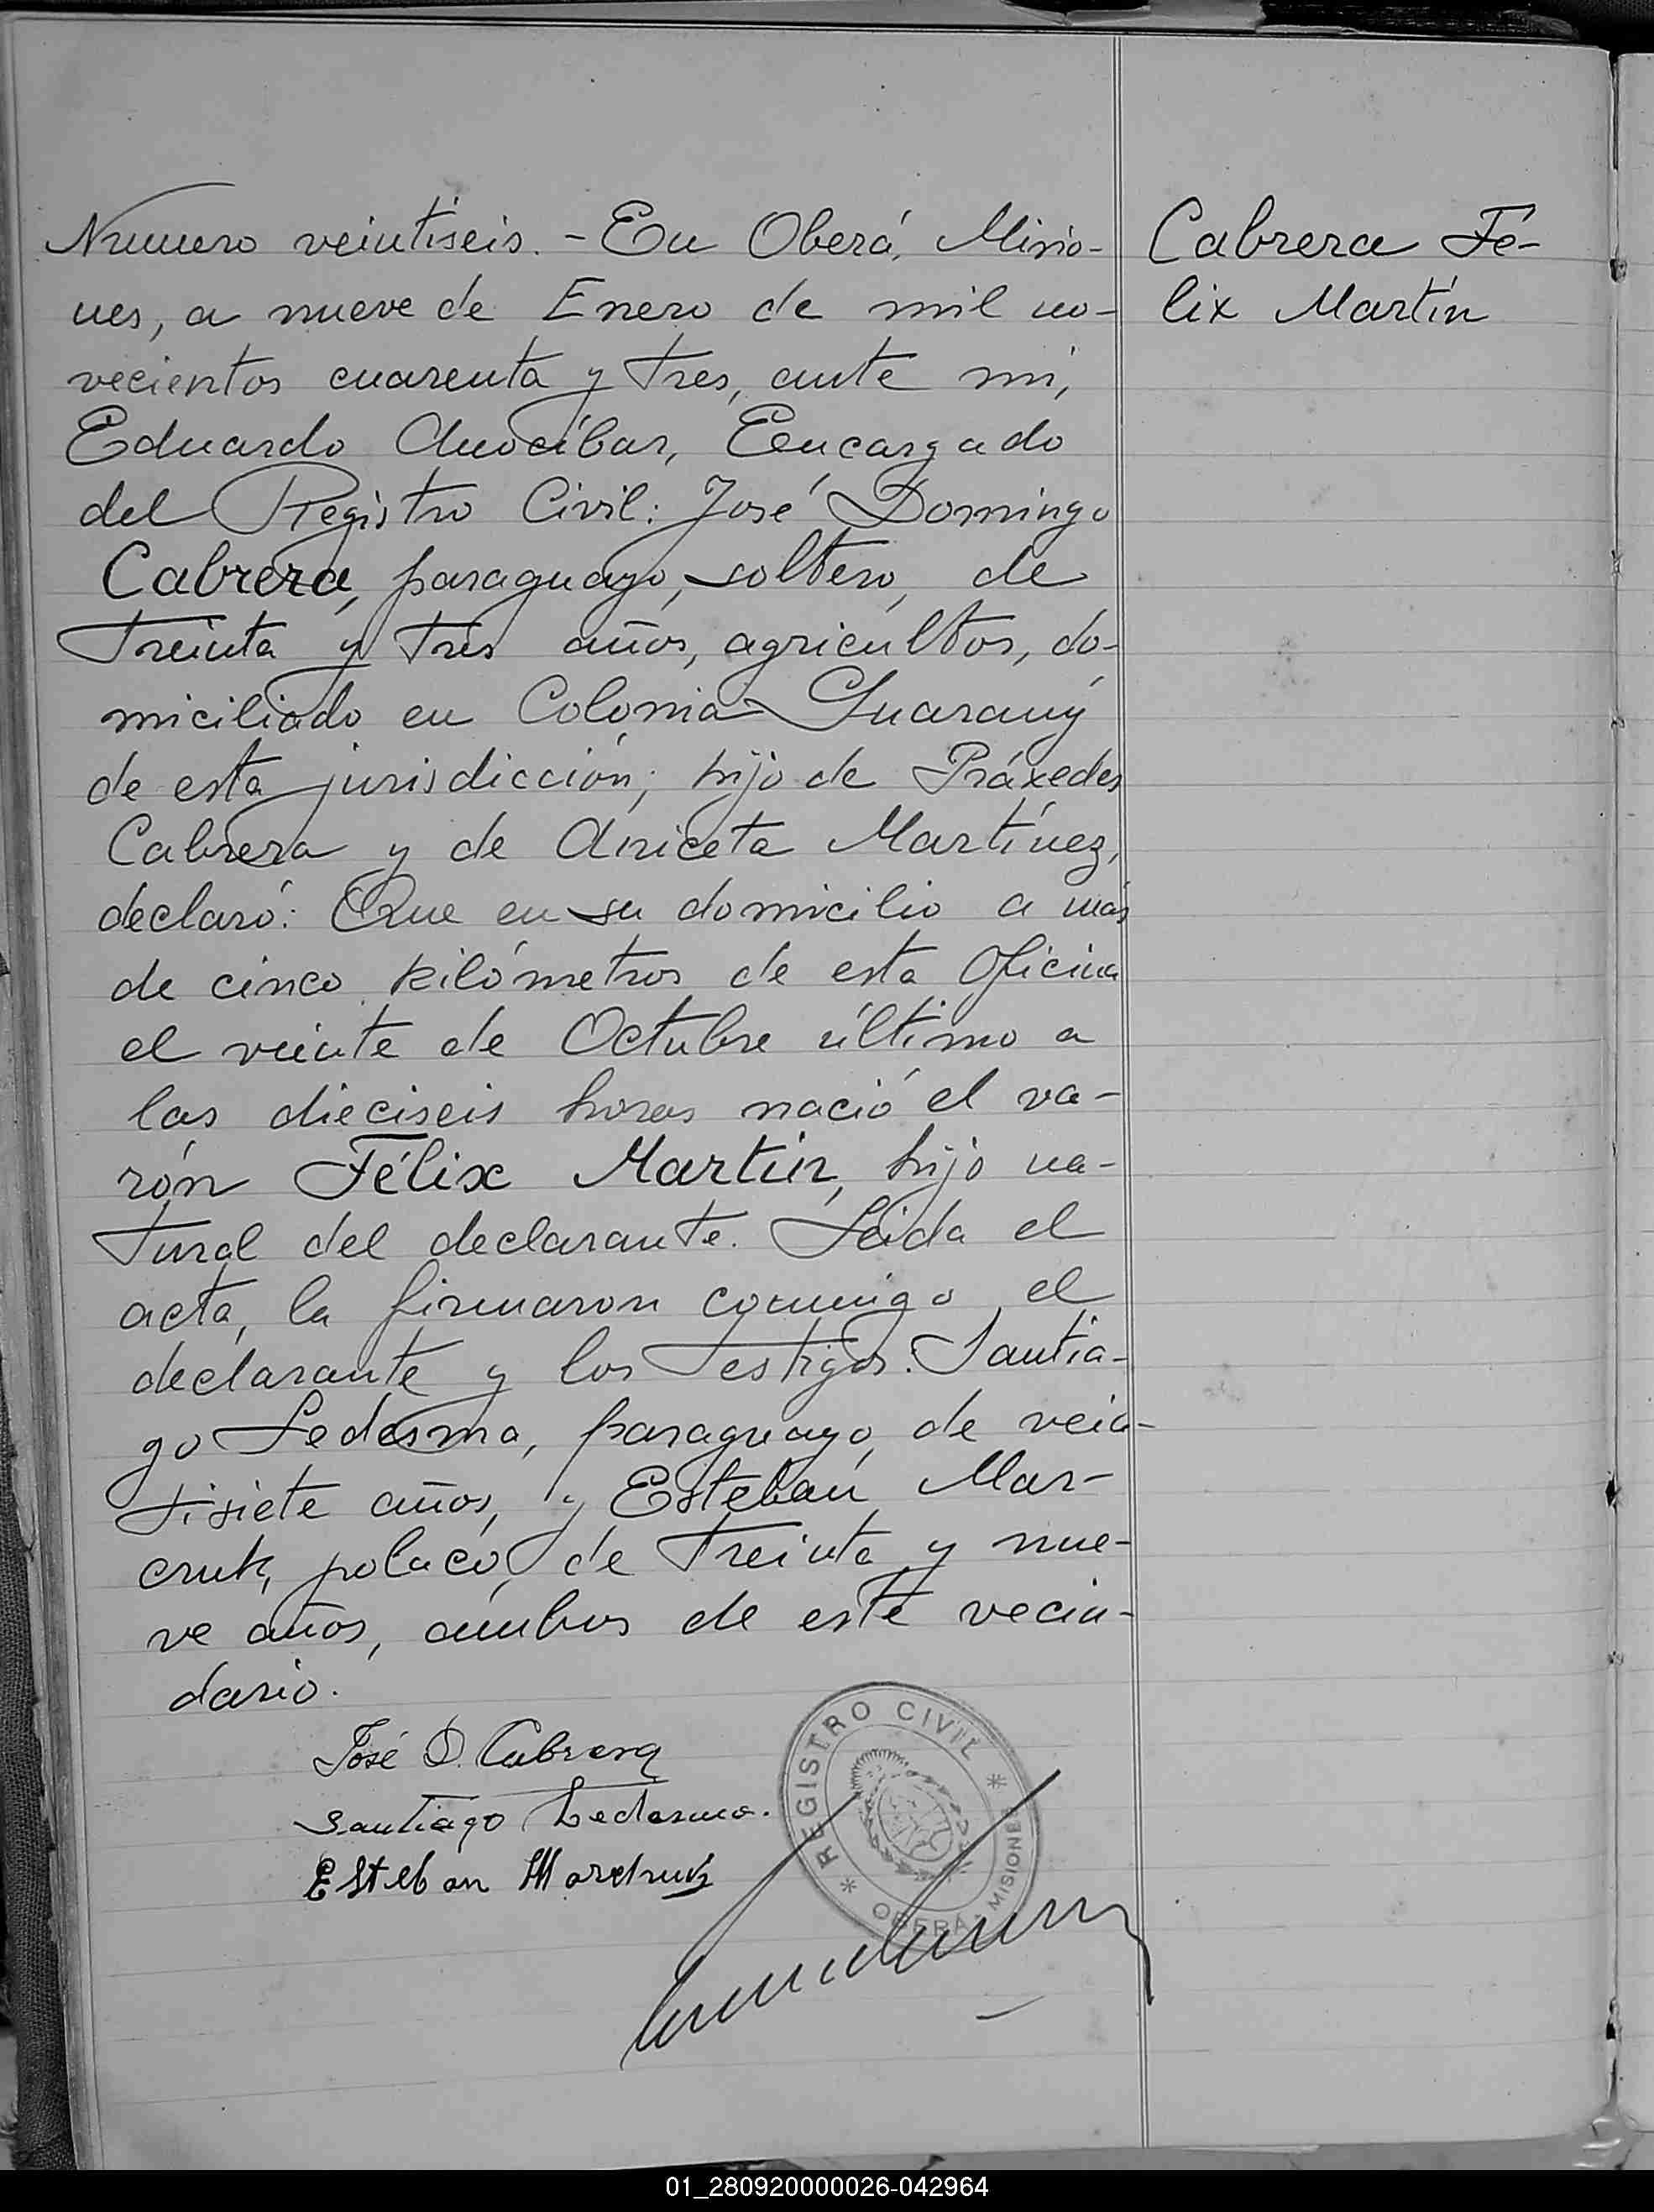 Numero veintiseis. - En Oberá, Misio-
nes, a nueve de Enero de mil no-
vecientos cuarenta y tres, ante mi,
Eduardo Anocíbar, Encargado
del Registro Civil: José Domingo
Cabrera, paraguayo, soltero, de
treinta y tres años, agricultor, do-
miciliado en Colonia Guarany
de esta jurisdicción; hijo de Práxedes
Cabrera y de Aniceta Martínez,
declaró: Que en su domicilio a más
de cinco kilómetros de esta Oficina
el veinte de Octubre último a
las dieciseis horas nació el va-
rón Félix Martín, hijo na-
tural del declarante. Leida el
acta, la firmaron conmigo, el
declarante y los testigos: Santia-
go Ledesma, paraguayo, de vein-
tisiete años, y Esteban Mar-
cruk, polaco, de treinta y nue-
ve años, ambos de este vecin-
dario.
Cabrera Fé-
lix Martín
José D. Cabrera
Santiago Ledesma.
Esteban
* REGISTRO CIVIL *
OBERÁ - MISIONES
01_280920000026-042964